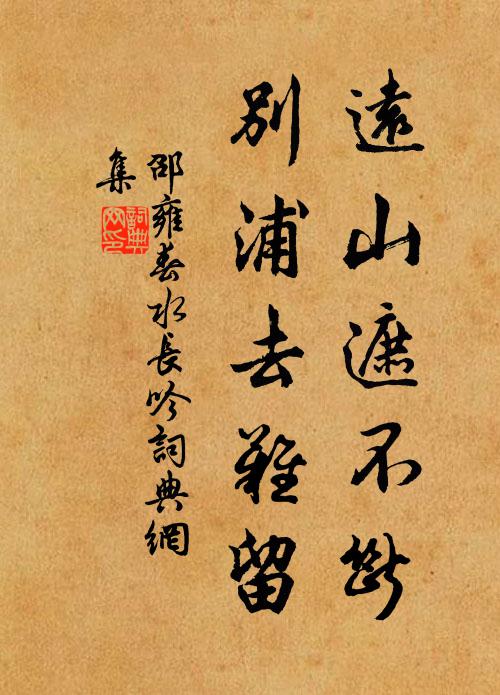 遠山遮不斷
別浦去難留
邵雍春水長吟詞典網
集
詞典
网印